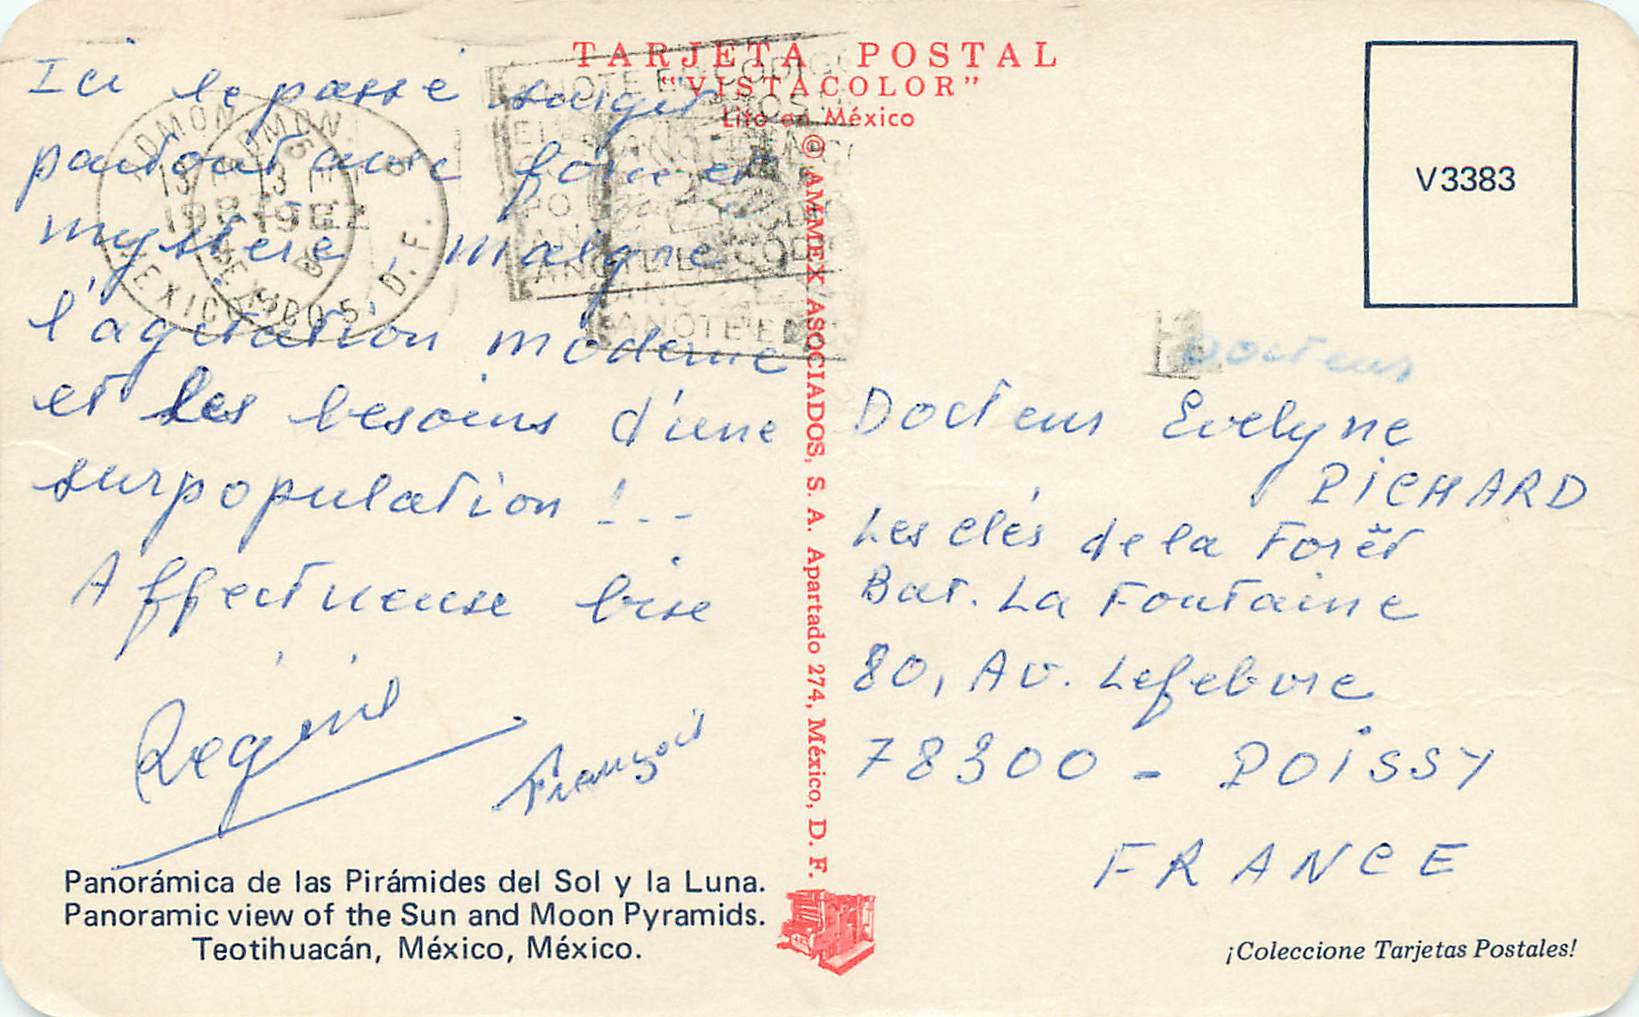 TARJETA POSTAL
"VISTACOLOR"
Lito en México
V3383
Ici le passé surgit
partout avec force et
mystère, malgré
l'agitation moderne
et les besoins d'une
surpopulation !..
Affectueuse bise
Régine
François
MEXICO 5, D.F.
ANOTE EL CODIGO
© AMMEX ASOCIADOS, S. A. Apartado 274, México, D. F.
Docteur
Docteur Evelyne
PICHARD
Les clés de la Forêt
Bat. La Fontaine
80, Av. Lefebvre
78300 - POISSY
FRANCE
Panorámica de las Pirámides del Sol y la Luna.
Panoramic view of the Sun and Moon Pyramids.
Teotihuacán, México, México.
¡Coleccione Tarjetas Postales!